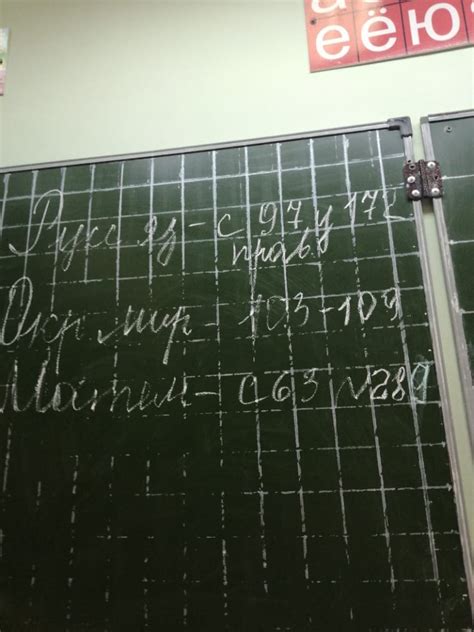 е ё ю
Русс яз - с 97 у 172
прав
Окр мир - 103-109
Матем - с 63 №289